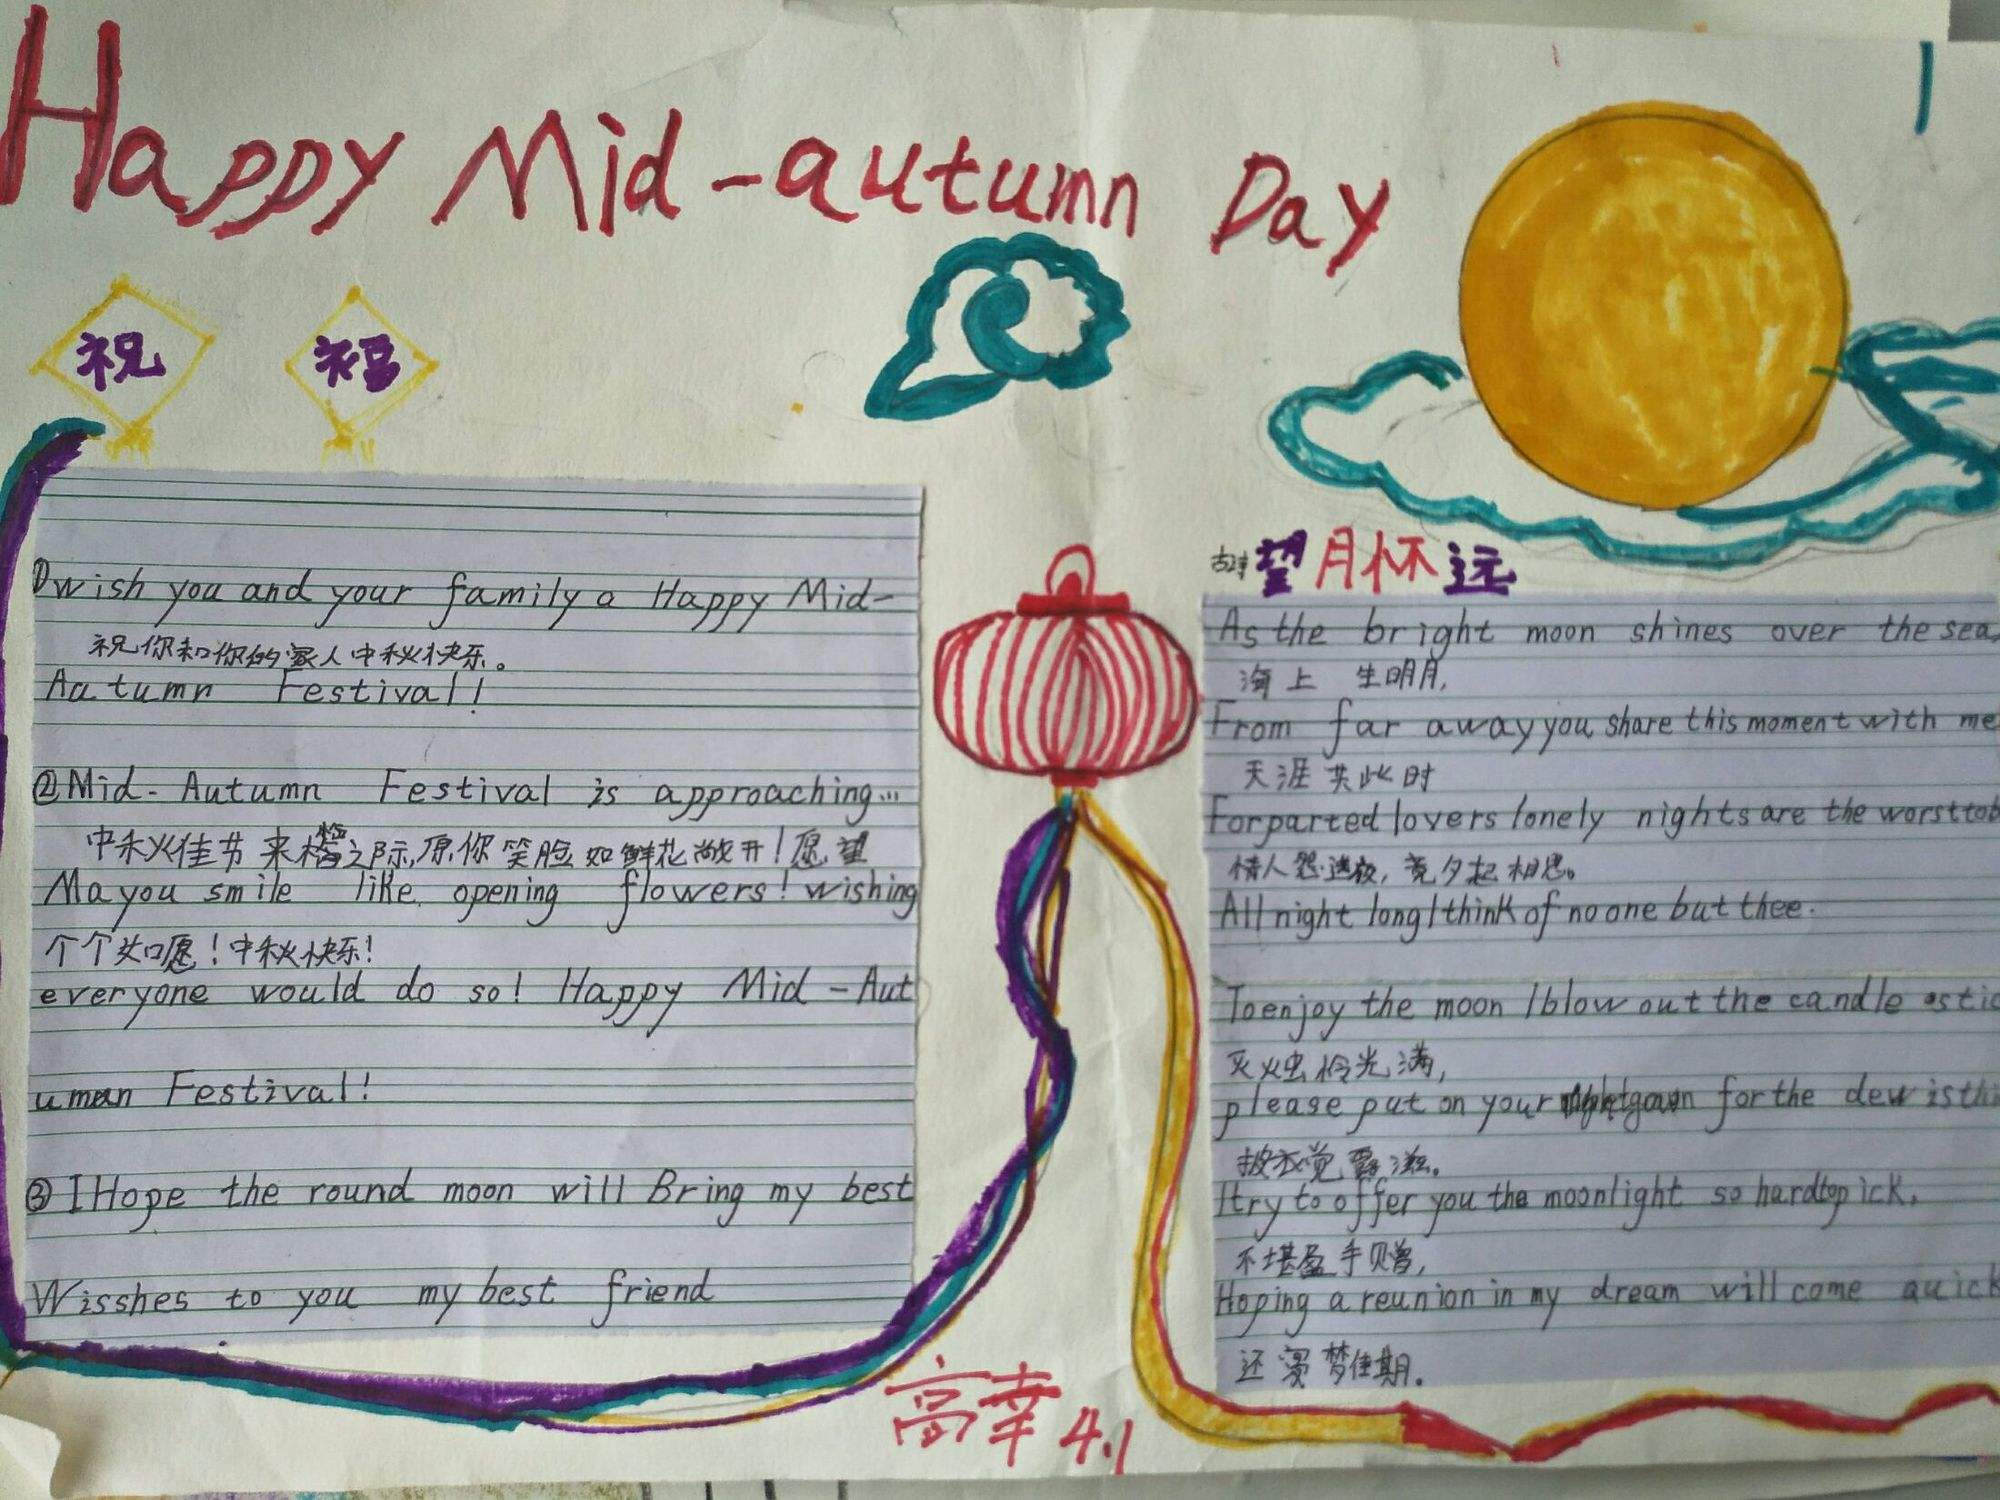 Happy Mid-autumn Day
祝 福
wish you and your family a Happy Mid-
祝你和你的家人中秋快乐。
Autumn Festival!
②Mid-Autumn Festival is approaching...
中秋佳节来临之际,原你笑脸如鲜花敞开!愿望
May you smile like opening flowers! wishing
个个如愿!中秋快乐!
everyone would do so! Happy Mid-Aut
uman Festival!
③I Hope the round moon will Bring my best
Wisshes to you my best friend
古诗 望月怀远
As the bright moon shines over the sea,
海上生明月,
From far away you share this moment with me
天涯共此时
For parted lovers lonely nights are the worst to b
情人怨遥夜,竟夕起相思。
All night long I think of no one but thee.
To enjoy the moon I blow out the candle stic
灭火虫怜光满,
please put on your for the dew is thi
披衣觉露滋。
I try to offer you the moonlight so hard to pick,
不堪盈手赠,
Hoping a reunion in my dream will come quick
还 梦佳期.
高幸 4.1